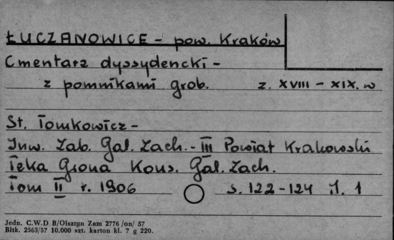 ŁUCZANOWICE - pow. Kraków
Cmentarz dyssydencki -
z pomnikami grob. z. XVIII - XIX. w
St. Tomkowicz -
Inw. Zab. Gal. Zach. - III Powiat Krakowski
Teka Grona Kons. Gal. Zach.
Tom II r. 1906 s. 122-124 J. 1
Jedn. C.W.D B/Olsztyn Zam 2776 /on/ 57
Blzk. 2563/57 10.000 szt. karton kl. 7 g 220.